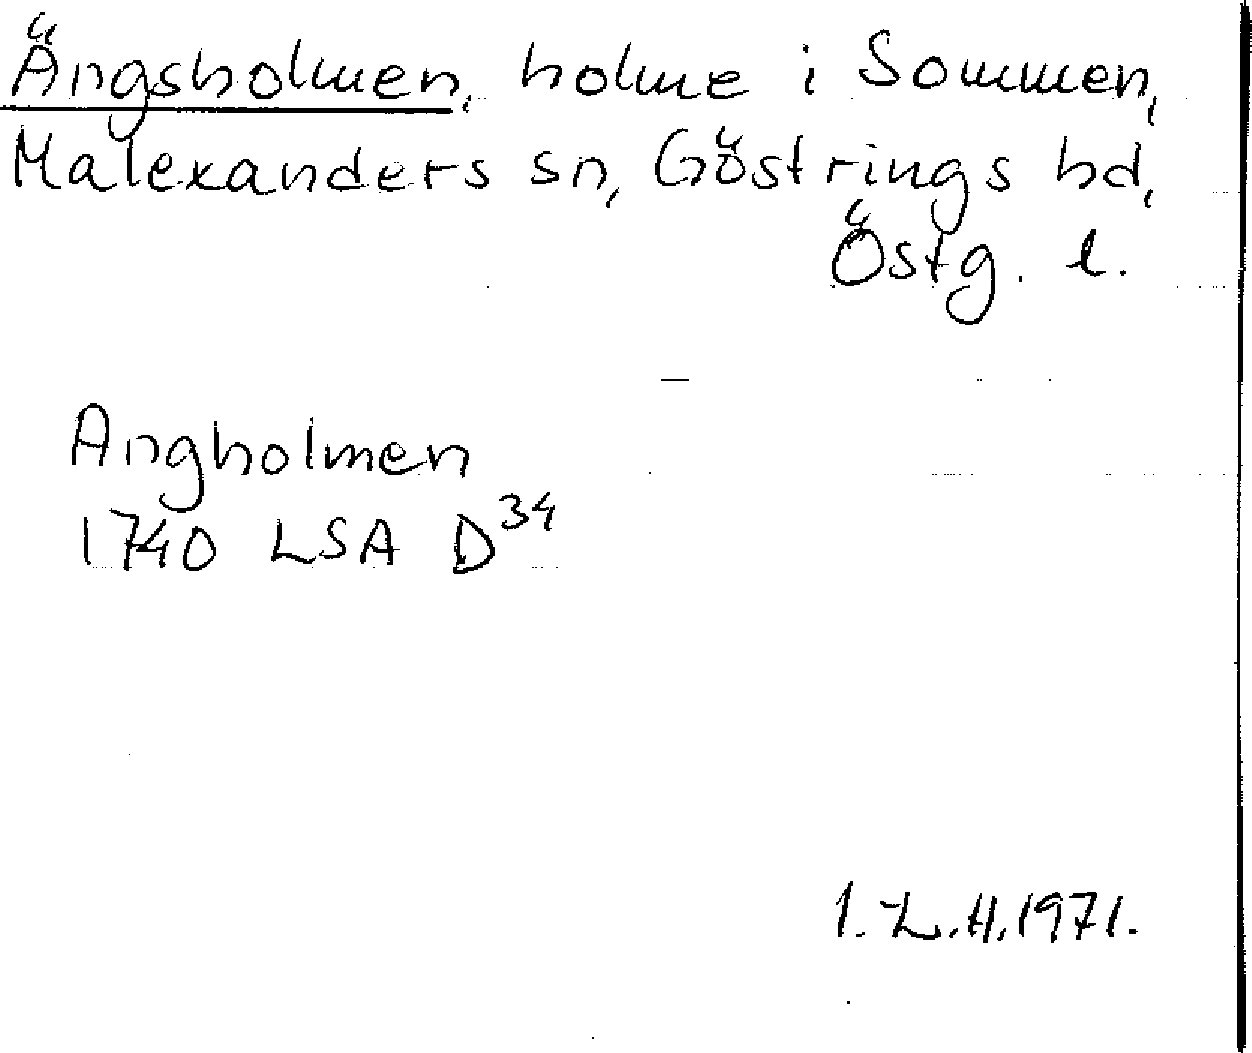 Ängsholmen, holme i Sommen,
Malexanders sn, Göstrings hd,
Östg. l.
Angholmen
1740 LSA D34
I.L.H. 1971.